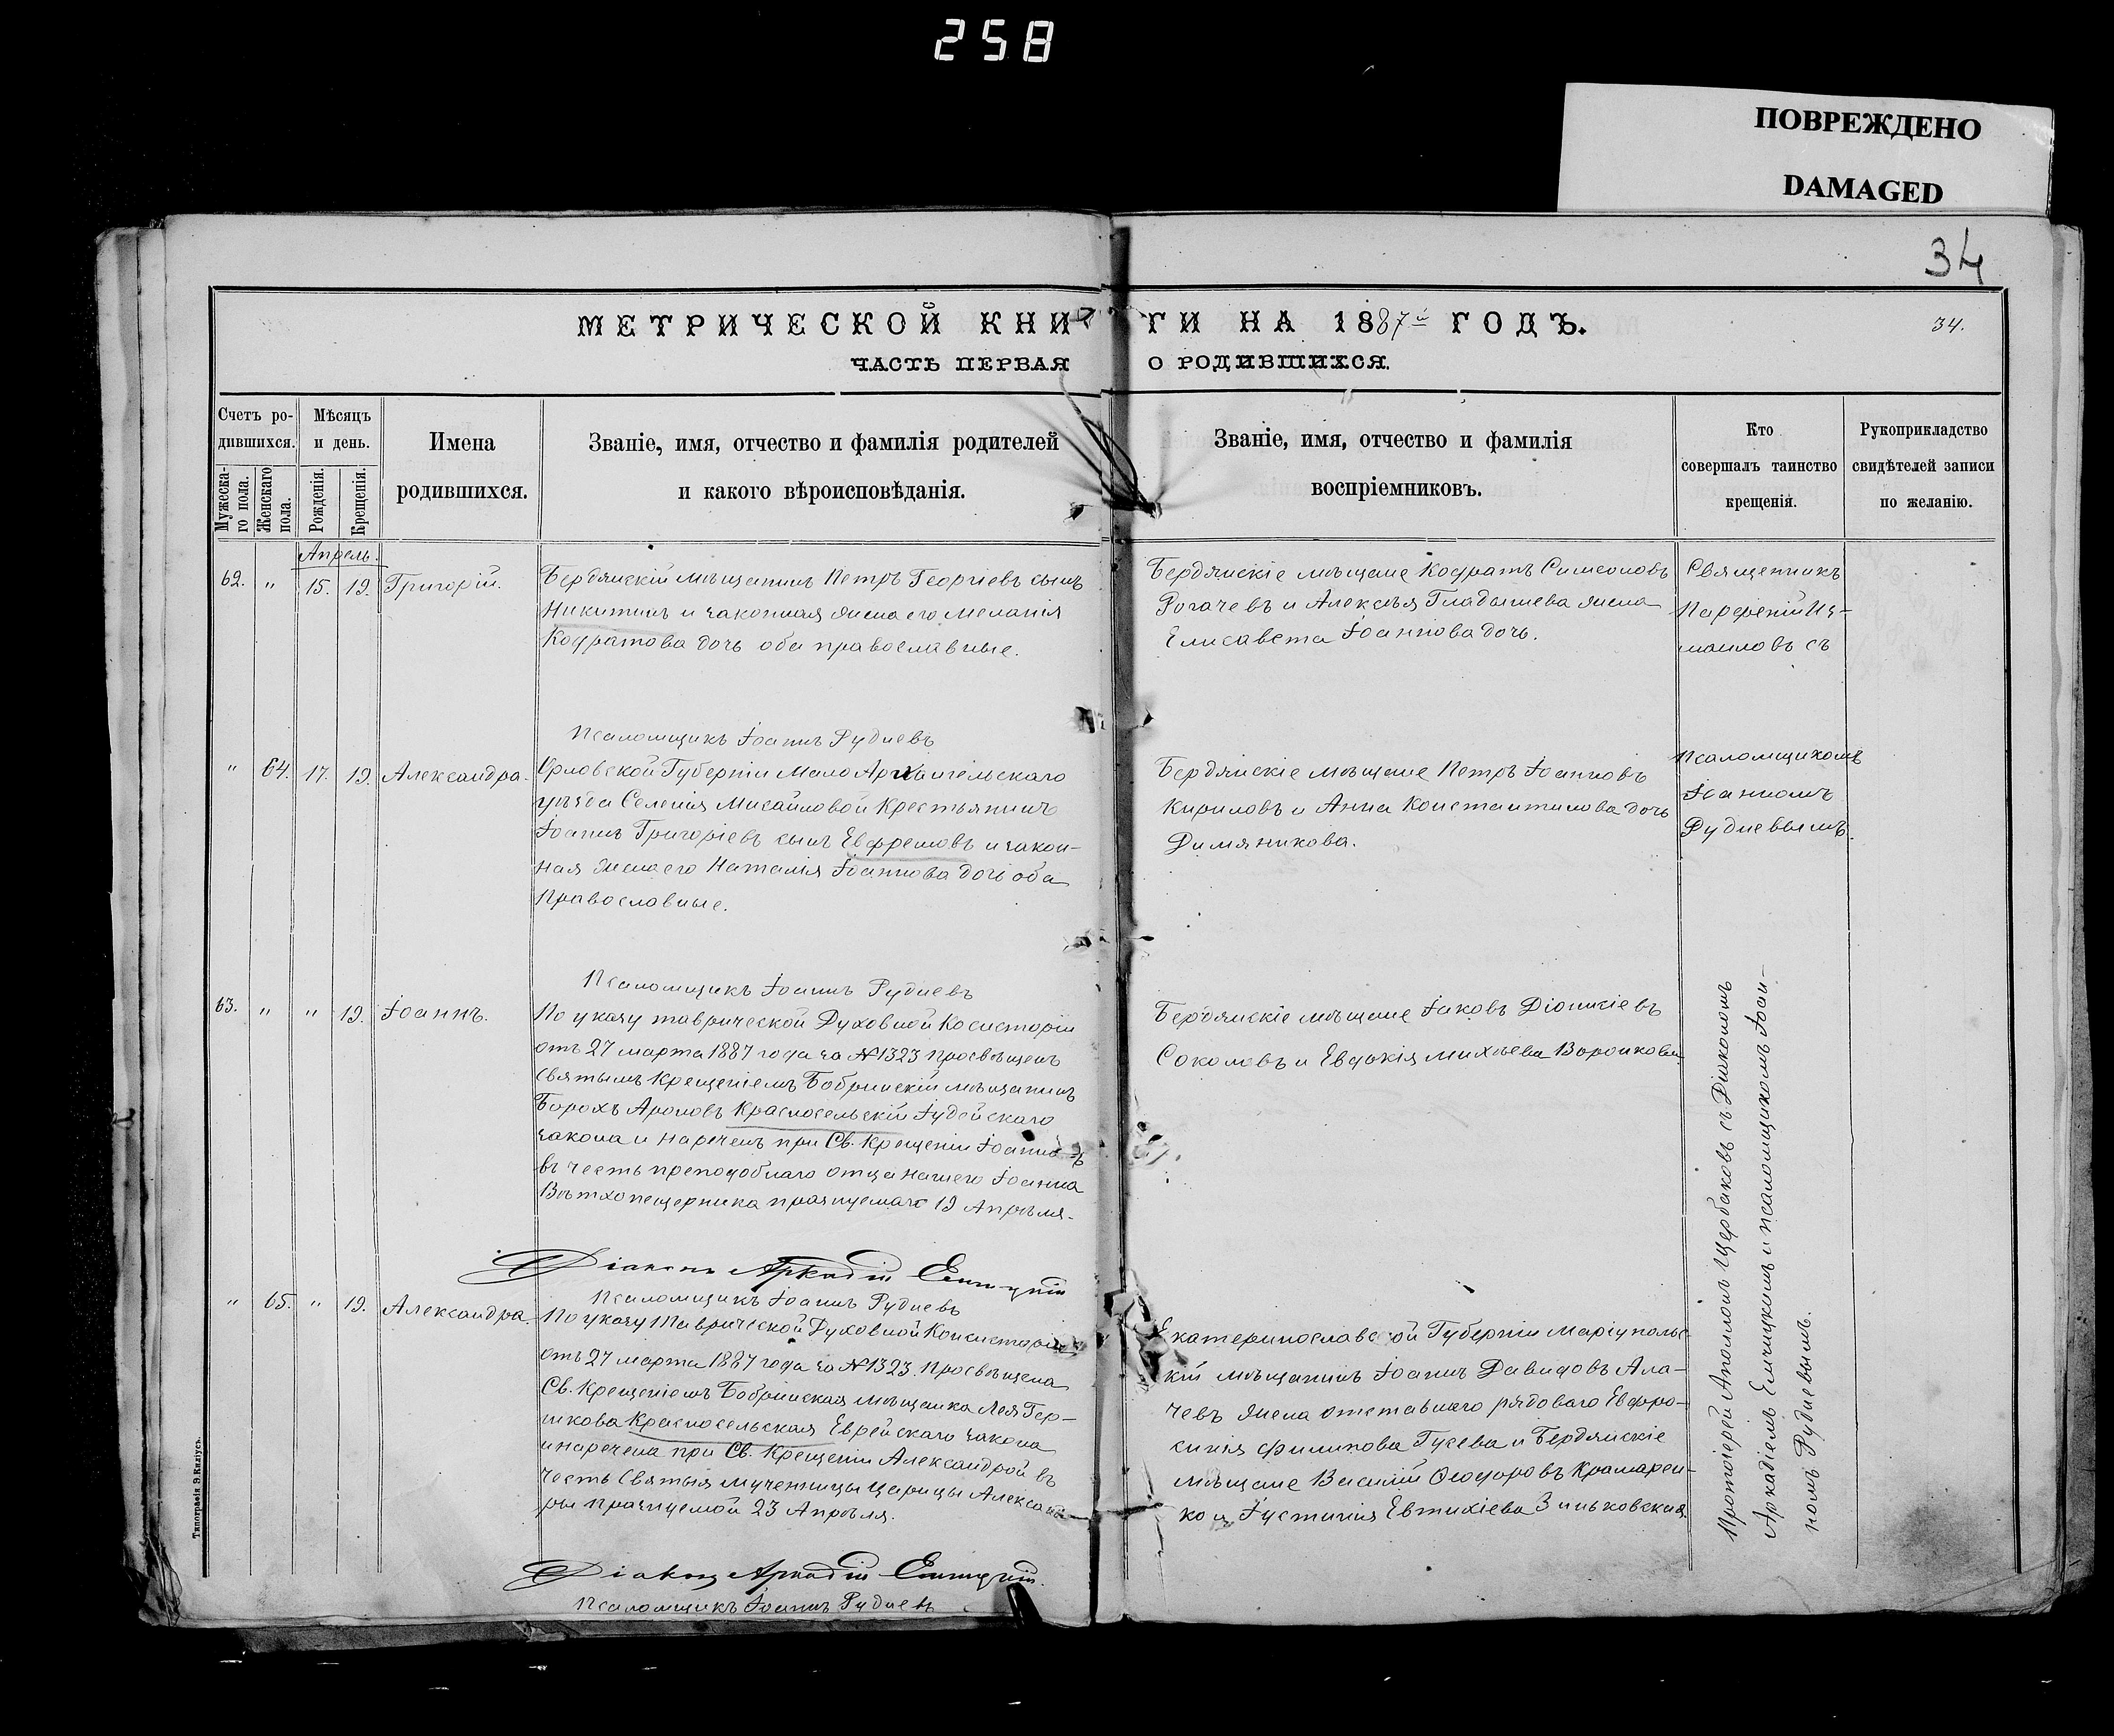 258
ПОВРЕЖДЕНО
DAMAGED
34
МЕТРИЧЕСКОЙ КНИ
ГИ НА 1887й ГОДЪ.
34.
ЧАСТЬ ПЕРВАЯ
О РОДИВШИХСЯ.
Счетъ ро-
дившихся.
Мужеска-
го пола.
Женскаго
пола.
Мѣсяцъ
и день.
Рожденія.
Крещенія.
Имена
родившихся.
Званіе, имя, отчество и фамилія родителей
и какого вѣроисповѣданія.
Званіе, имя, отчество и фамилія
воспріемниковъ.
Кто
совершалъ таинство
крещенія.
Рукоприкладство
свидѣтелей записи
по желанію.
Апрель.
62. " 15. 19. Григорій.
Бердянскій мѣщанинъ Петръ Георгіевъ сынъ
Никитинъ и законная жена его Меланія
Кодратова дочь оба православные.
Бердянскіе мѣщане Кодратъ Симеоновъ
Рогачевъ и Алексѣя Гладышева жена
Елисавета Іоаннова дочь.
Священникъ
Парфеній Из-
маиловъ съ
Псаломщикъ Іоаннъ Рудневъ
" 64. 17. 19. Александра.
Орловской Губерніи Мало Архангельскаго
уѣзда Селенія Михайловой Крестьянинъ
Іоаннъ Григоріевъ сынъ Евфремовъ и закон-
ная жена его Наталія Іоаннова дочь оба
Православные.
Бердянскіе мѣщане Петръ Іоанновъ
Кириловъ и Анна Константинова дочь
Димяникова.
Псаломщикомъ
Іоанномъ
Рудневымъ.
Псаломщикъ Іоаннъ Рудневъ
63. " " 19. Іоаннъ.
По указу таврической Духовной Косисторіи
отъ 27 марта 1887 года за №1323 просвѣщенъ
святымъ Крещеніемъ Бобринскій мѣщанинъ
Борохъ Ароновъ Красносельскій Іудейскаго
закона и нареченъ при Св. Крещеніи Іоаннъ
въ честь преподобнаго отца нашего Іоанна
Ветхопещерника празднуемаго 19 Апрѣля.
Бердянскіе мѣщане Іаковъ Діонисіевъ
Соколовъ и Евдокія Михѣева Воронкова.
Діаконъ Аркадій Елицкій
Псаломщикъ Іоаннъ Рудневъ
" 65. " 19. Александра.
По указу Таврической Духовной Консисторіи
отъ 27 марта 1887 года за №1323. Просвѣщена
Св. Крещеніемъ Бобринская мѣщанка Лея Гер-
шкова Красносельская Еврейскаго закона
и наречена при Св. Крещеніи Александрой въ
честь Святыя мученицы Царицы Александ
ры празнуемой 23 Апрѣля.
Екатеринославской Губерніи Маріупольс-
кій мѣщанинъ Іоаннъ Давидовъ Ала-
чевъ жена отставнаго рядоваго Евфро-
синія Филипова Гусева и Бердянскіе
мѣщане Василій Ѳеодоровъ Крамарен-
ко и Іустинія Евтихіева Зиньковская.
Протоіерей Аполлонъ Щербаковъ съ Діакономъ
Аркадіемъ Елицкимъ и псаломщикомъ Іоан-
номъ Рудневымъ.
Діаконъ Аркадій Елицкій.
Псаломщикъ Іоаннъ Рудневъ
Типографія Э. Килліусъ.